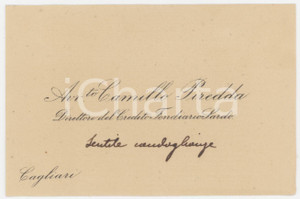 Avv.to Camillo Piredda
Direttore del Credito Fondiario Sardo
Sentite condoglianze
Cagliari
iCharta